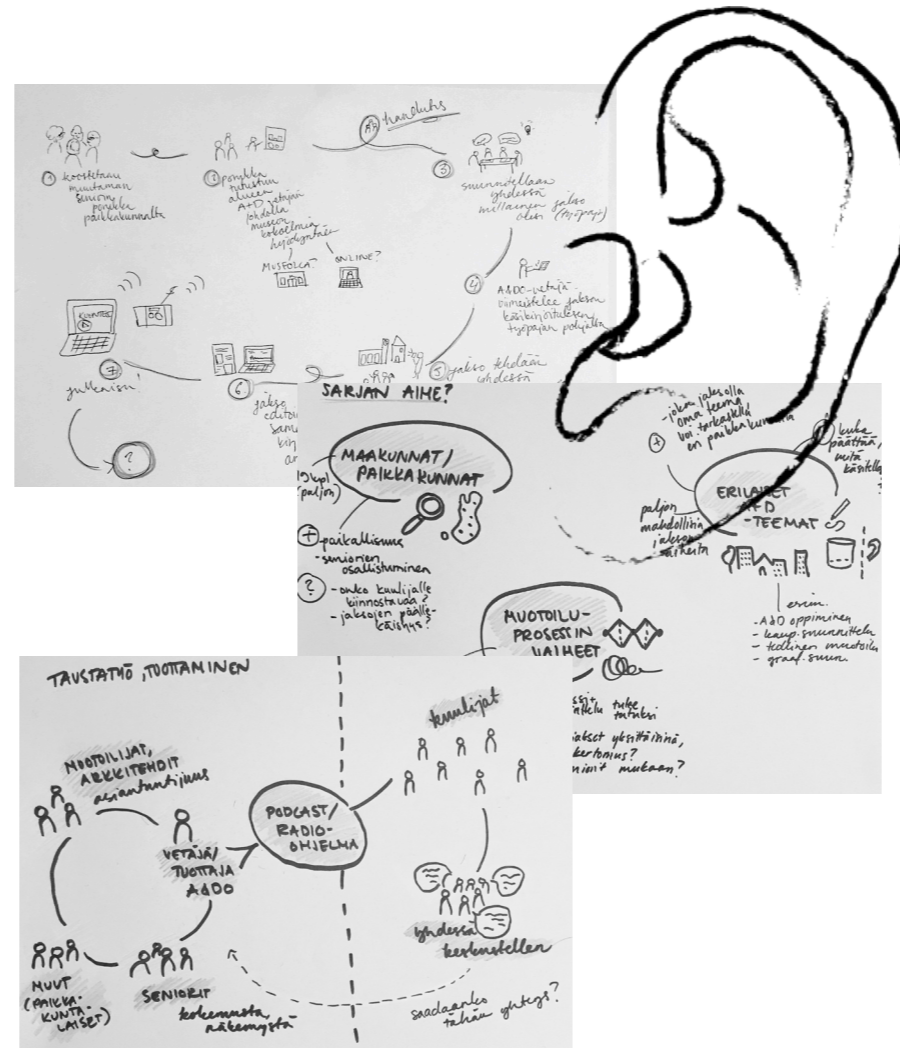 haudutus
① koostetaan
muutaman
seniorin
porukka
paikkakunnalta
② porukka
tutustuu
alueen
A+D
johdolla
museon
kokoelmia
hyödyntäen
MUSEOLLA?
ONLINE?
③
suunnitellaan
yhdessä
millainen jakso
olisi (työpaja)
④
A&DO-vetäjä
viimeistelee jakson
käsikirjoituksen
työpajan pohjalta
⑤ jakso tehdään
yhdessä
⑥
jakso
⑦
julkaisu!
?
SARJAN AIHE?
MAAKUNNAT/
PAIKKAKUNNAT
(paljon)
+ paikallisuus
- seniorien
osallistuminen
? - onko kuulijalle
kiinnostavaa?
- jaksojen päälle-
käisyys?
- joka jaksolla
oma teema
voi tarkastella
eri paikkakunnilta
+
kuka
päättää,
mitä
käsitellä
?
ERILAISET
A+D
-TEEMAT
paljon
mahdollisia
jakson
aiheita
esim.
- A&D oppiminen
- kaup. suunnittelu
- teollinen muotoilu
- graaf. suun.
MUOTOILU-
PROSESSIN
VAIHEET
tulee
tutuksi
jaksot yksittäisinä,
kertomus?
mukaan?
TAUSTATYÖ, TUOTTAMINEN
MUOTOILIJAT,
ARKKITEHDIT
asiantuntijuus
VETÄJÄ/
TUOTTAJA
A&DO
PODCAST/
RADIO-
OHJELMA
kuulijat
yhdessä
keskustellen
MUUT
(PAIKKA-
KUNTA-
LAISET)
SENIORIT
kokemusta
näkemystä
saadaanko
tähän yhteys?